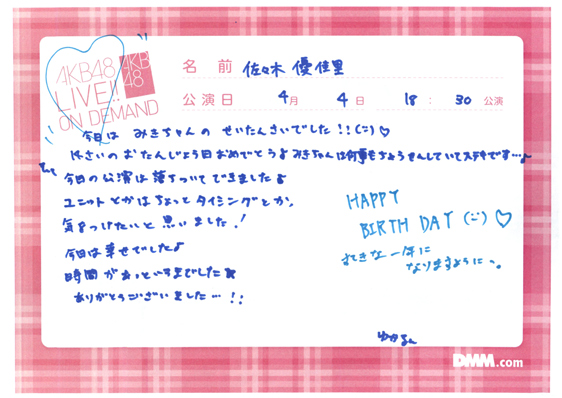 AKB48
LIVE!!
ON DEMAND
AKB
48
名 前 佐々木 優佳里
公演日 4月 4日 18:30 公演
今日は みきちゃんの せいたんさいでした!!(ˊᵕˋ)♡
さいのおたんじょう日おめでとう♪みきちゃんは何事もちょうせんしていてステキです…♪
今日の公演は落ちついてできました♪
ユニットとかはちょっとタイミングとか、
気をつけたいと思いました!
今日は幸せでした♪
時間があっという間でした★
ありがとうございました…!!
HAPPY
BIRTH DAY (ˊᵕˋ)♡
すてきな一年に
なりますように。
ゆかるん
DMM.com